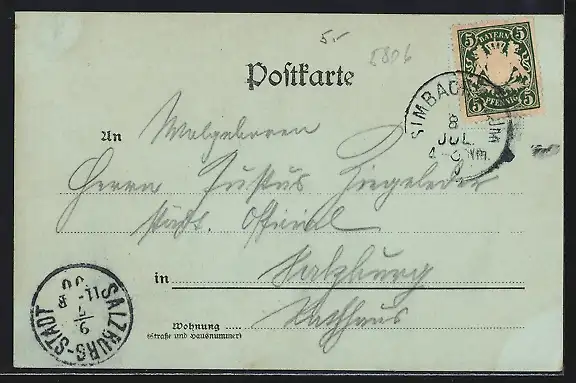 5.-
5806
Postkarte
5 BAYERN 5
5 PFENNIG 5
SIMBACH
8
JUL
4-  Nm.
An Wolgeboren
Herrn Justus Ziegeleder
städt. Official
in Salzburg
Wohnung
Rathhaus
(Straße und Hausnummer)
SALZBURG-STADT
9/7
11-
00